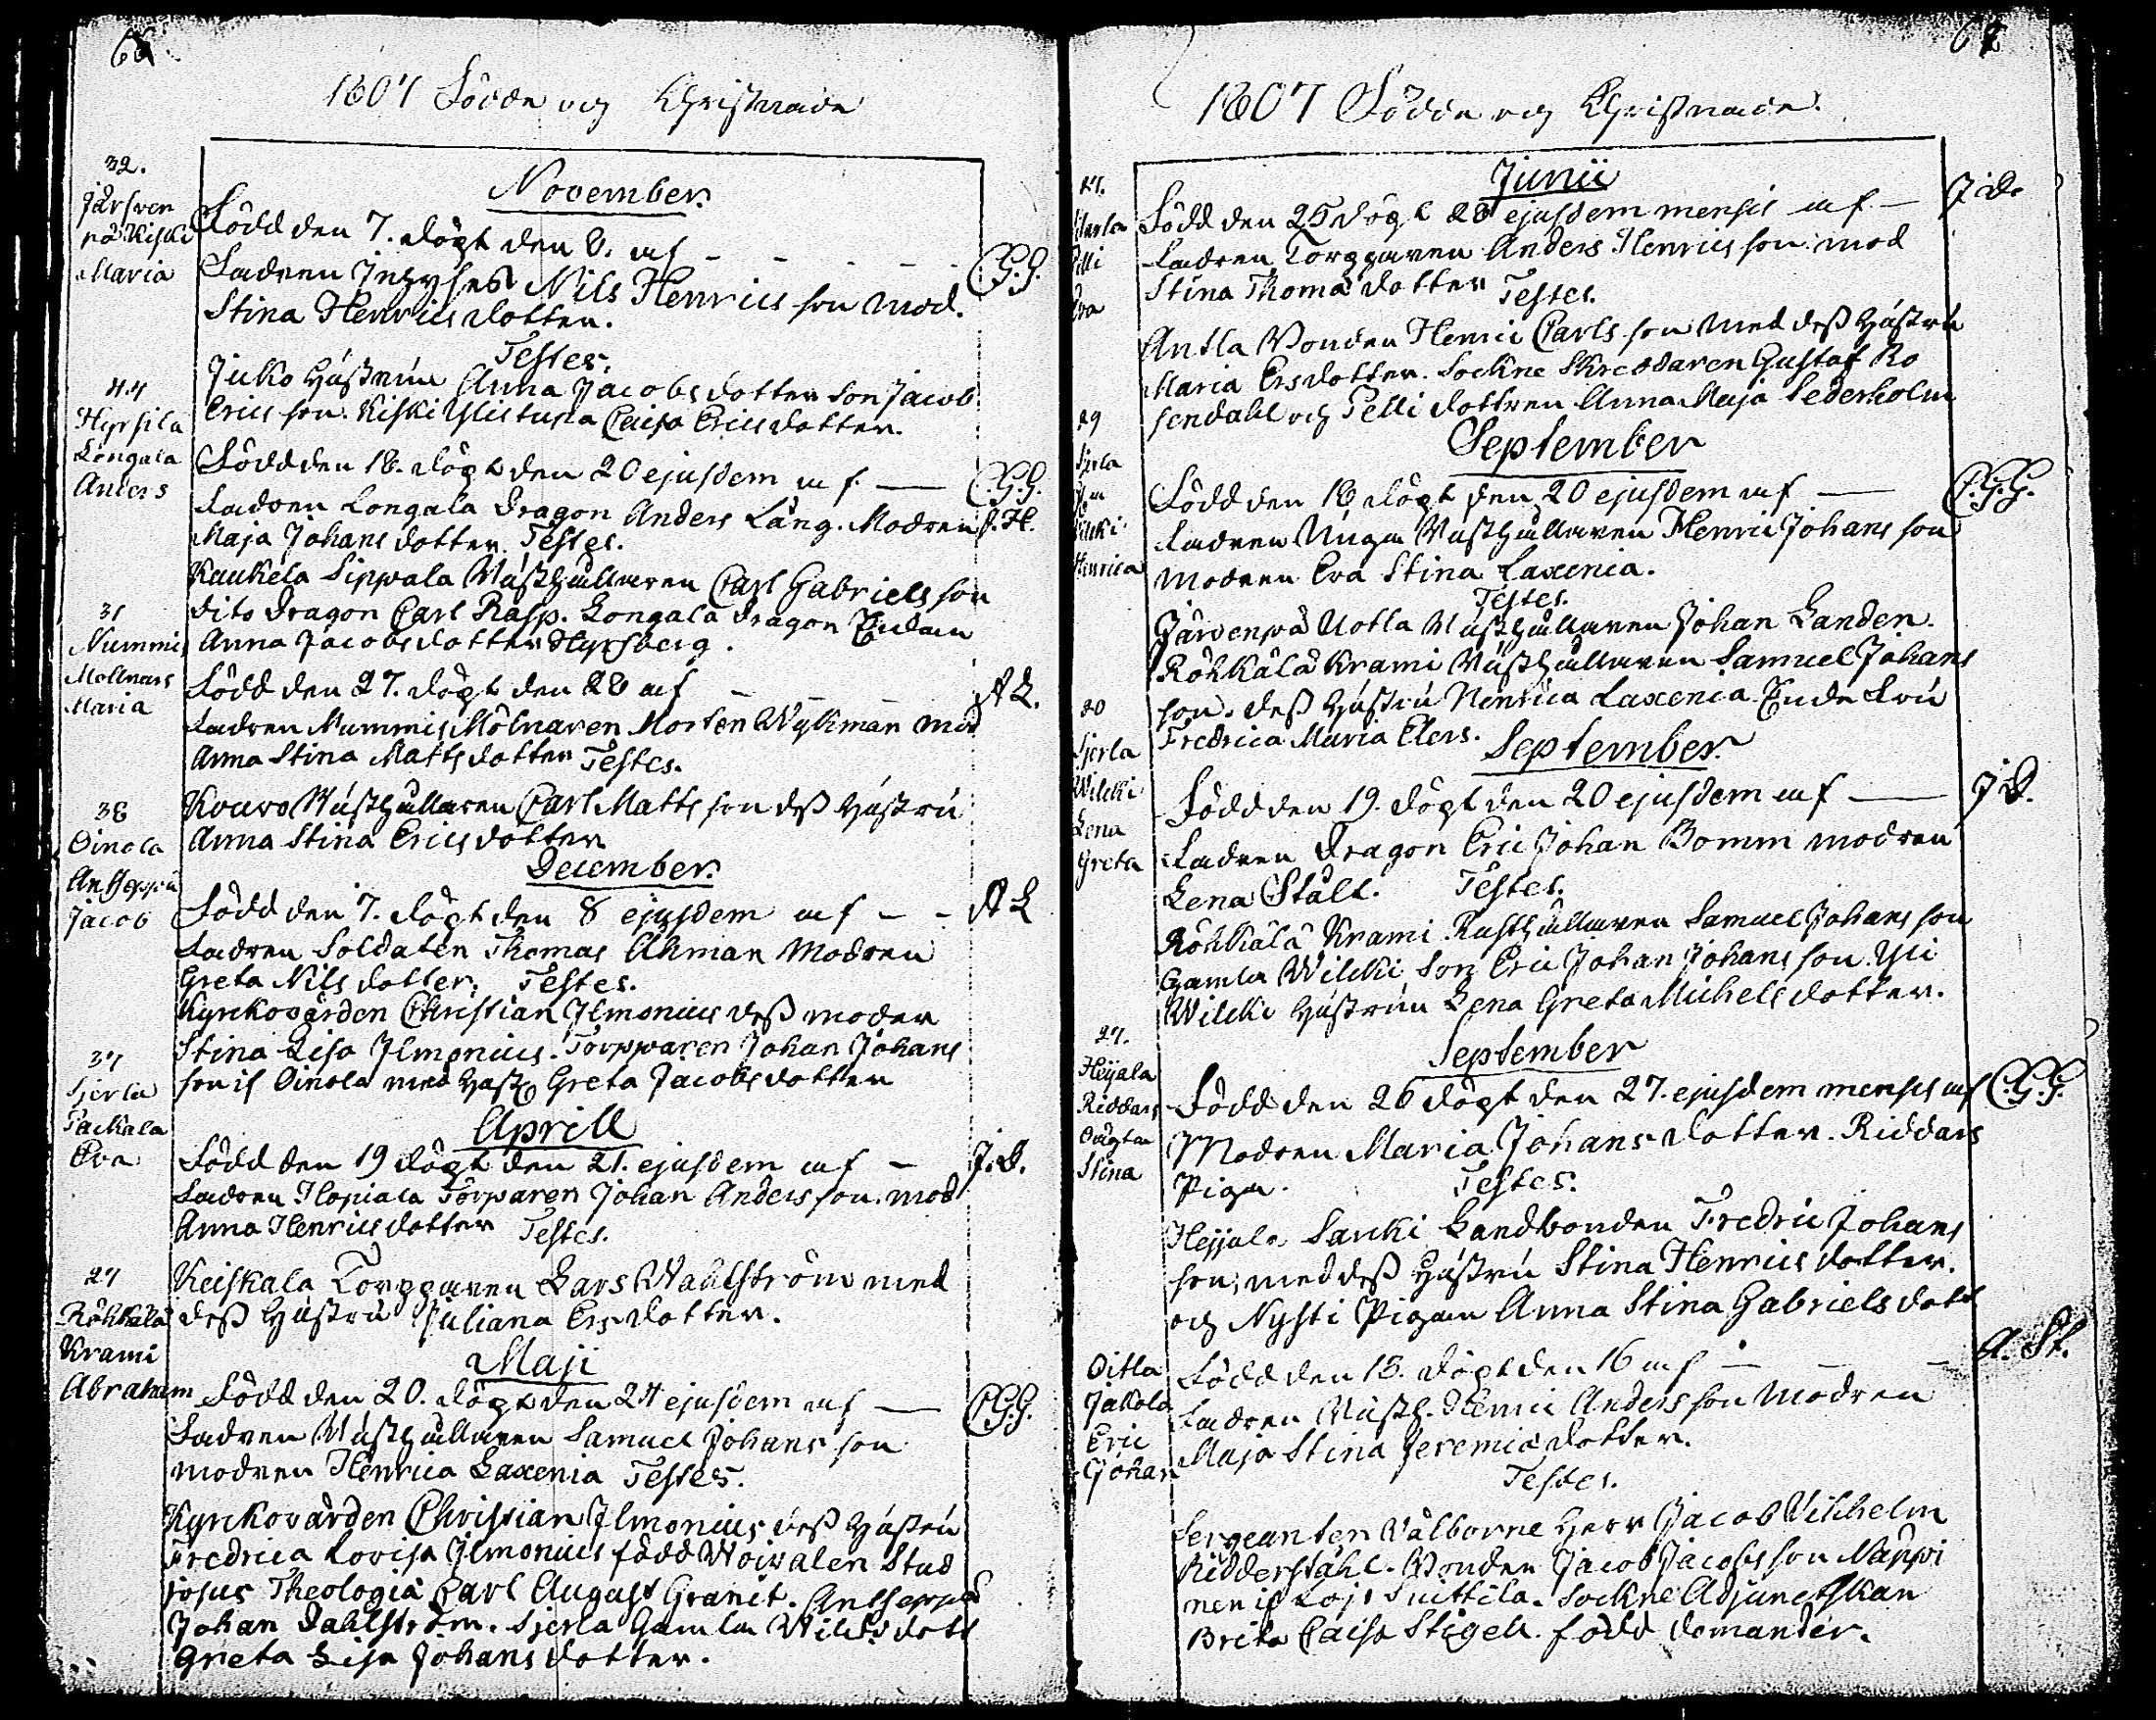 66
1807 Födde och Christnade
November.
32.
Järfven
pä Kiski
Maria
Född den 7. döpt den 8. af - - - - - C.G.G.
Fadren Inhyses Nils Henricsson Mod.
Stina Henricsdotter.
Testes.
Juko Hustrun Anna Jacobsdotter Son Jacob
Ericsson. Kiski Caisa Ericsdotter.
44
Hyrsilä
Longala
Anders
Född den 18. döpt den 20 ejusdem af — C.G.G.
Fadren Longala Dragon Anders Lång. Modren
Maja Johansdotter. Testes.
Kaukela Sippala Rusthållaren Carl Gabrielsson
dito Dragon Carl Rasp. Longala Dragon Enkan
Anna Jacobsdotter Hyrsberg.
31
Nummis
Mollnars
Maria
Född den 27. döpt den 28 af — — — A L.
Fadren Nummis Mölnaren Morten Wykman Mod
Anna Stina Mattsdotter Testes.
Kouvo Rusthållaren Carl Mattsson dess Hustru
Anna Stina Ericsdotter
December.
38
Oinola
Antseppä
Jacob
Född den 7. döpt den 8 ejusdem af - - A L
Fadren Soldaten Thomas Åkman Modren
Greta Nilsdotter. Testes.
Kyrckovärden Christian Ilmonius dess moder
Stina Lisa Ilmonius. Torpparen Johan Johans
son if Oinola med Hust. Greta Jacobsdotter
Aprill
37
Sjerla
Packala
Eva
Född den 19 döpt den 21. ejusdem af - J.D.
Fadren Hopiala Torparen Johan Andersson. mod
Anna Henricsdotter Testes.
Keiskala Torpparen Lars Wahlström med
dess Hustru Juliana Ersdotter.
Maji
27
Röhkälä
Krami
Abraham
Född den 20. döpt den 24 ejusdem af — C.G.G.
Fadren Rusthållaren Samuel Johansson
modren Henrica Laxenia Testes.
Kyrckovärden Christian Ilmonius dess Hustru
Fredrica Lovisa Ilmonius född Woivalen Stud
josus Theologiä Carl August Granit. Antseppä
Johan Dahlström. Sjerla Gamla Wilcki dott
Greta Lisa Johansdotter.
67
1807 Födde och Christnade.
Junii
27.
Pelli
Eva
Född den 25 döpt 28 ejusdem mensis af — J D.
Fadren Torpparen Anders Henricsson mod
Stina Thomädotter Testes.
Antla Bonden Henric Carlsson med dess Hustru
Maria Ersdotter. Sockne Skreddaren Gustaf Ro
sendahl och Pelli dottren Anna Maja Sederholm
September
29
Sjerla
Wilcki
Henrica
Född den 16 döpt den 20 ejusdem af — C.G.G.
Fadren Unga Rusthållaren Henric Johansson
modren Eva Stina Laxenia.
Testes.
Järvenpä Uotla Rusthållaren Johan Landen.
Röhkälä Krami Rusthållaren Samuel Johans
son. dess Hustru Henrica Laxenia. Enke Fru
Fredrica Maria Elers.
September.
20
Sjerla
Wilcki
Lena
Greta
Född den 19. döpt den 20 ejusdem af — J D.
Fadren Dragon Eric Johan Bomm modren
Lena Stålt. Testes.
Röhkälä Krami Rusthållaren Samuel Johansson
Gamla Wilcki Son Eric Johan Johansson. Yli
Wilcki Hustrun Lena Greta Michelsdotter.
September
27.
Heijala
Riddars
Oägta
Stina
Född den 26 döpt den 27. ejusdem mensis af C.G.G.
Modren Maria Johansdotter. Riddars
Piga. Testes.
Heijala Sarcki Landbonden Fredric Johans
son, med dess Hustru Stina Henricsdotter.
och Nysti Pigan Anna Stina Gabrielsdott
Oitla
Jakola
Eric
Johan
Född den 13. döpt den 16 af — — — A. St.
Fadren Rusth. Henric Andersson Modren
Maja Stina Jeremiädotter.
Testes.
Sergeanten Välborne Herr Jacob Vilhelm
Ridderståhl. Bonden Jacob Jacobsson Näppi
nen if Lojo Suittila. Sockne Adjunctskan
Brita Caisa Stigell. född Domander.